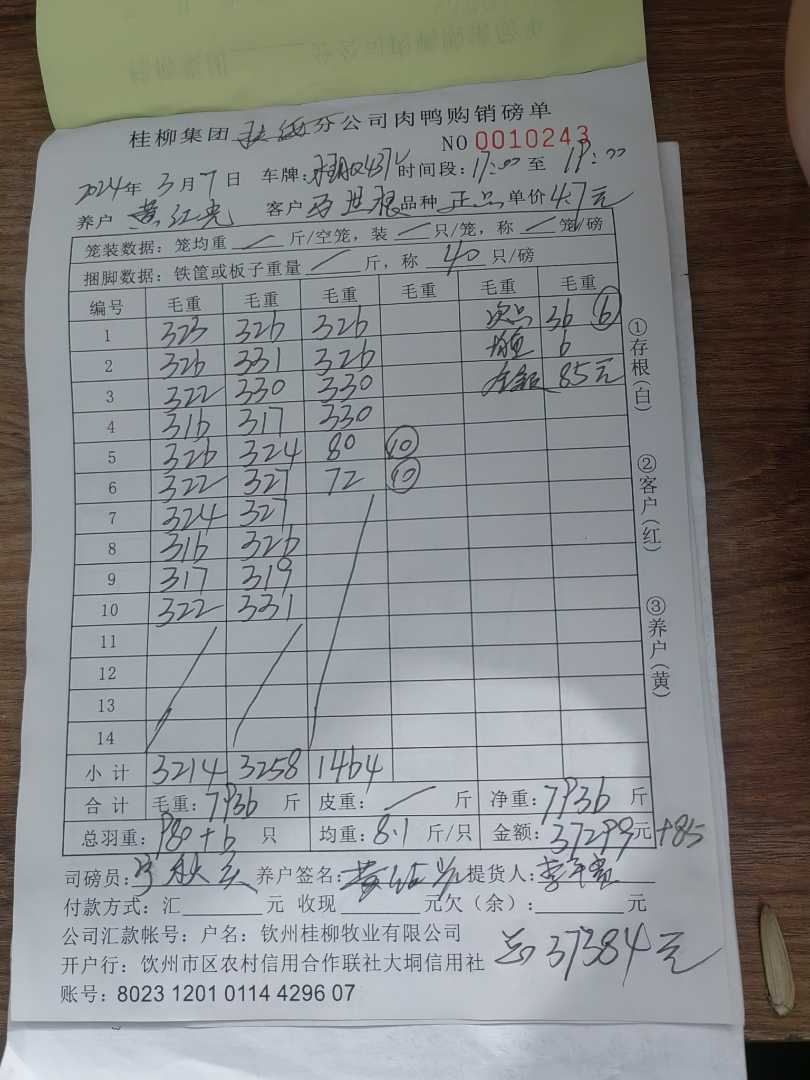 桂柳集团 分公司肉鸭购销磅单
NO 0010243
2024年 3月7日 车牌: 时间段: 17:00 至 19:00
养户 黄红亮 客户 品种 正品 单价 4.7元
笼装数据: 笼均重 / 斤/空笼, 装 / 只/笼, 称 / 笼/磅
捆脚数据: 铁筐或板子重量 / 斤, 称 40 只/磅
编号 毛重 毛重 毛重 毛重 毛重 毛重
1 323 326 326 次品 36 ⑥
2 326 331 326 均重 6
3 322 330 330 金额 85元
4 316 317 330
5 326 324 80 ⑩
6 322 327 72 ⑩
7 324 327
8 316 326
9 317 319
10 322 331
11
12
13
14
小计 3214 3258 1464
合计 毛重: 7936 斤 皮重: / 斤 净重: 7936 斤
总羽重: 980+6 只 均重: 8.1 斤/只 金额: 37299元+85
司磅员: 养户签名: 提货人:
付款方式: 汇 元 收现 元欠(余): 元
公司汇款帐号: 户名: 钦州桂柳牧业有限公司
开户行: 钦州市区农村信用合作联社大垌信用社
总37384元
账号: 8023 1201 0114 4296 07
①存根(白)
②客户(红)
③养户(黄)